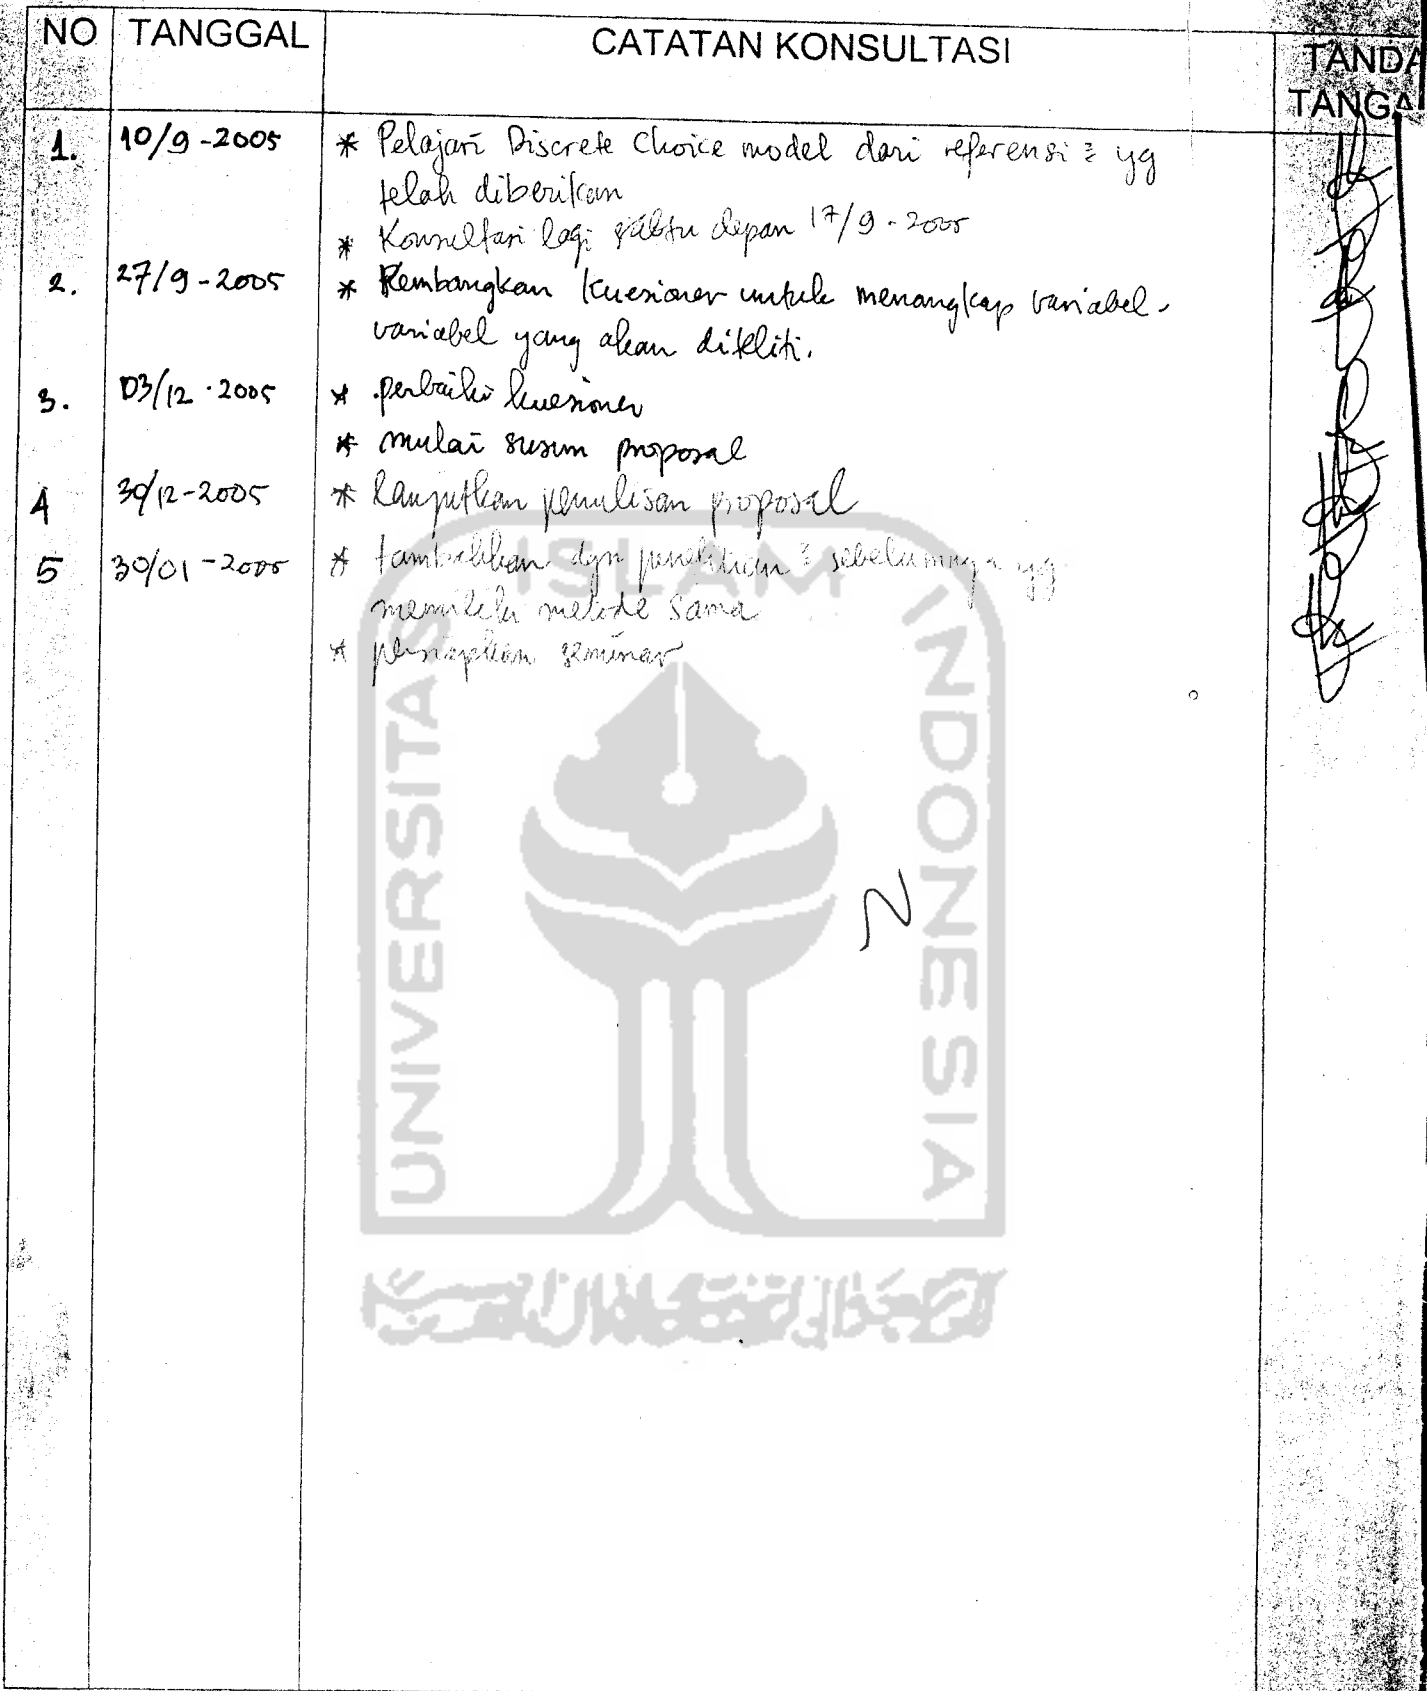 NO TANGGAL CATATAN KONSULTASI TANDA
TANGA
1. 10/9-2005 * Pelajari Discrete Choice model dari referensi 2 yg
telah diberikan
* Konsultasi lagi sabtu depan 17/9-2005
2. 27/9-2005 * Kembangkan kuesioner untuk menangkap variabel-
variabel yang akan diteliti.
3. 03/12-2005 * perbaiki kuesioner
* mulai susun proposal
4 30/12-2005 * lanjutkan penulisan proposal
5 30/01-2005 * tambahkan dgn penelitian 2 sebelumnya yg
memiliki metode sama
* persiapkan seminar
UNIVERSITAS ISLAM INDONESIA